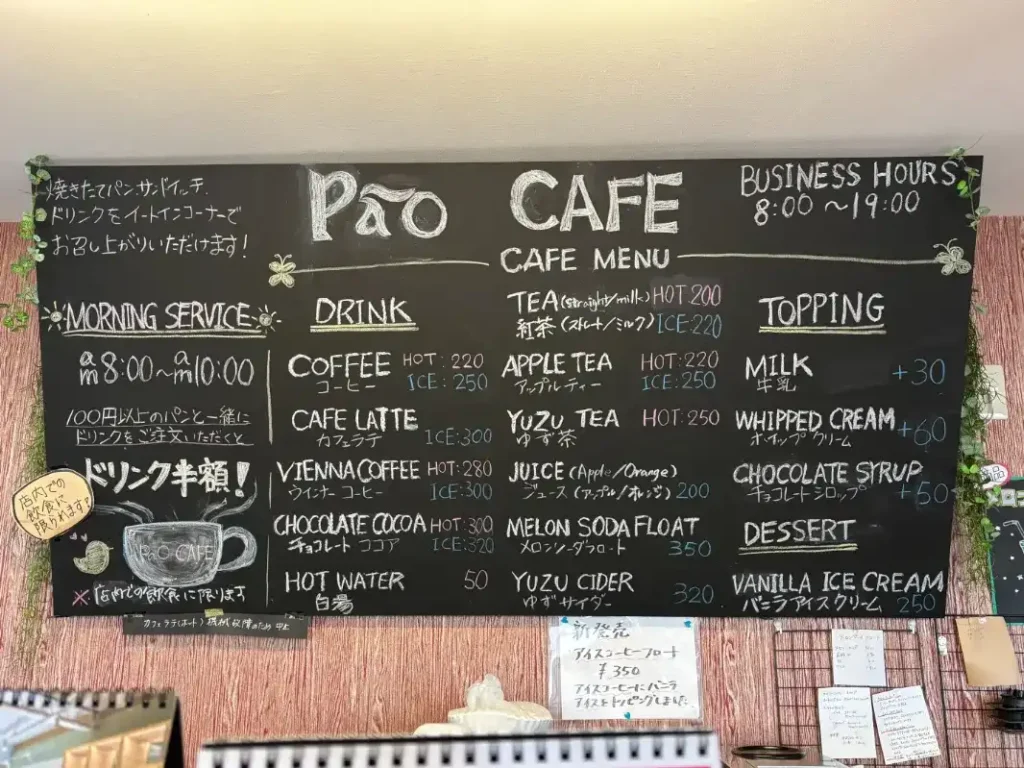 焼きたてパン、サンドイッチ、
ドリンクをイートインコーナーで
お召し上がりいただけます!
Pão CAFE
CAFE MENU
BUSINESS HOURS
8:00 ~ 19:00
MORNING SERVICE
am 8:00 ~ am 10:00
100円以上のパンと一緒に
ドリンクをご注文いただくと
ドリンク半額!
店内での
飲食に
限ります!
PãO CAFE
※店内での飲食に限ります
カフェラテ(ホット)機械故障のため 中止
DRINK
COFFEE HOT: 220
コーヒー ICE: 250
CAFE LATTE
カフェラテ ICE:300
VIENNA COFFEE HOT: 280
ウインナーコーヒー ICE: 300
CHOCOLATE COCOA HOT: 300
チョコレートココア ICE: 320
HOT WATER 50
白湯
TEA (straight/milk) HOT: 200
紅茶 (ストレート/ミルク) ICE: 220
APPLE TEA HOT: 220
アップルティー ICE: 250
YUZU TEA HOT: 250
ゆず茶
JUICE (Apple/Orange)
ジュース (アップル/オレンジ) 200
MELON SODA FLOAT
メロンソーダフロート 350
YUZU CIDER
ゆずサイダー 320
TOPPING
MILK +30
牛乳
WHIPPED CREAM +60
ホイップクリーム
CHOCOLATE SYRUP
チョコレートシロップ +50
DESSERT
VANILLA ICE CREAM
バニラアイスクリーム 250
新発売
アイスコーヒーフロート
¥350
アイスコーヒーにバニラ
アイスをトッピングしました